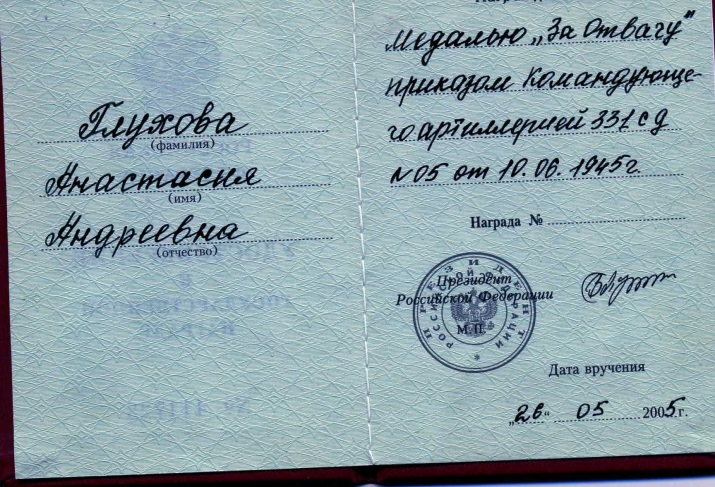 Глухова
(фамилия)
Анастасия
(имя)
Андреевна
(отчество)
Медалью „За Отвагу"
приказом Командующе-
го артиллерией 331 сд
№05 от 10.06.1945г.
Награда №
Президент
Российской Федерации
М.П.
ПРЕЗИДЕНТ
РОССИЙСКОЙ ФЕДЕРАЦИИ
Дата вручения
„26" 05 2005г.